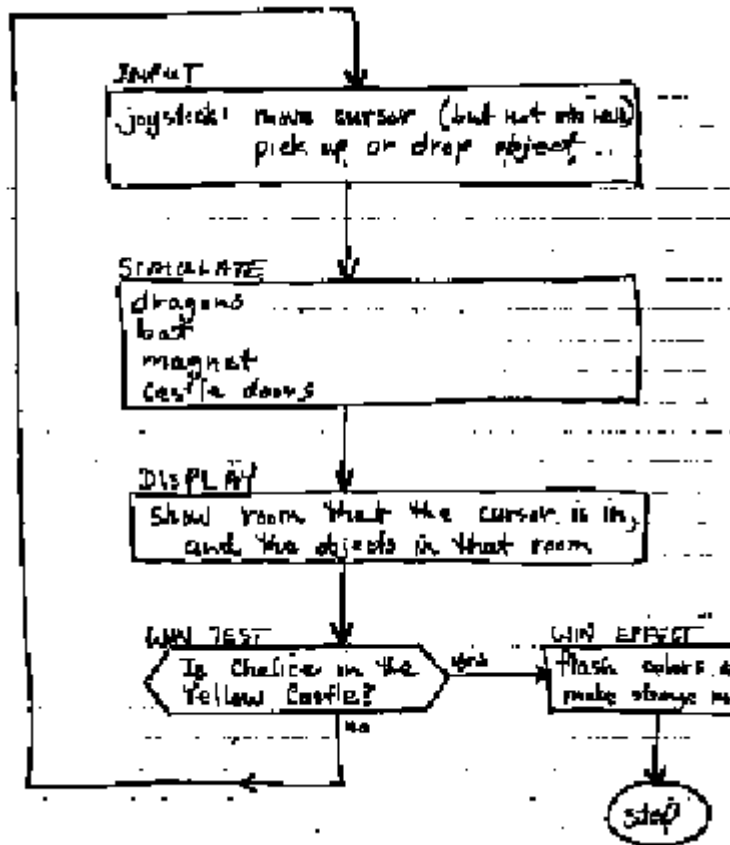 INPUT
joystick: move cursor (but not into wall)
pick up or drop object
SIMULATE
dragons
bat
magnet
castle doors
DISPLAY
Show room that the cursor is in,
and the objects in that room
WIN TEST
Is Chalice in the
Yellow Castle?
yes
no
WIN EFFECT
flash colors
make strange
stop